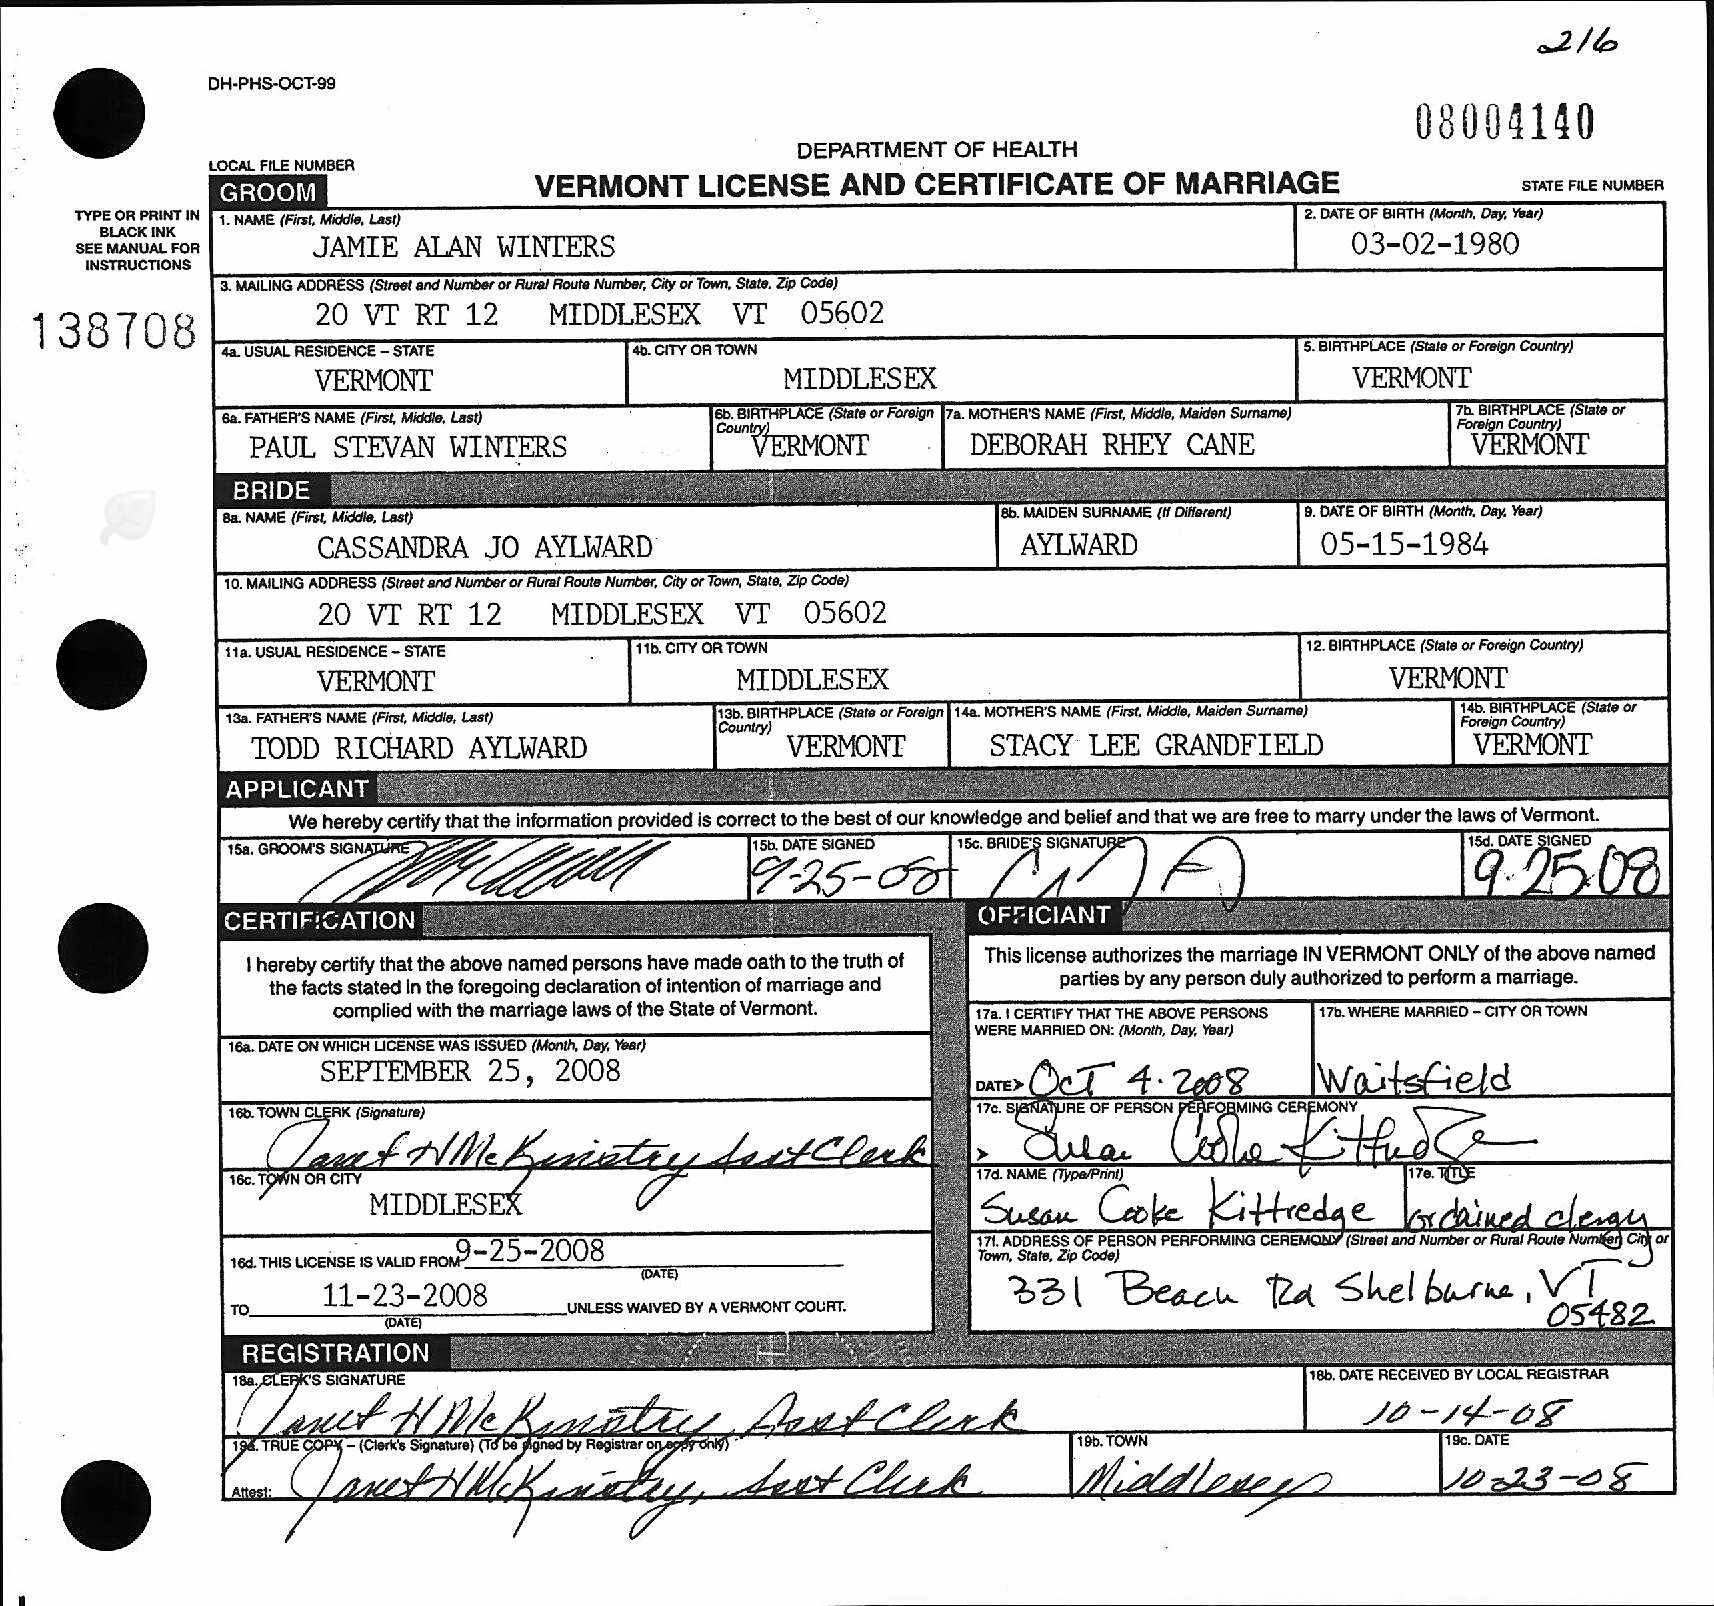 216
DH-PHS-OCT-99
08004140
DEPARTMENT OF HEALTH
LOCAL FILE NUMBER
VERMONT LICENSE AND CERTIFICATE OF MARRIAGE
STATE FILE NUMBER
GROOM
TYPE OR PRINT IN
BLACK INK
SEE MANUAL FOR
INSTRUCTIONS
138708
1. NAME (First, Middle, Last)
JAMIE ALAN WINTERS
2. DATE OF BIRTH (Month, Day, Year)
03-02-1980
3. MAILING ADDRESS (Street and Number or Rural Route Number, City or Town, State, Zip Code)
20 VT RT 12 MIDDLESEX VT 05602
4a. USUAL RESIDENCE – STATE
VERMONT
4b. CITY OR TOWN
MIDDLESEX
5. BIRTHPLACE (State or Foreign Country)
VERMONT
6a. FATHER'S NAME (First, Middle, Last)
PAUL STEVAN WINTERS
6b. BIRTHPLACE (State or Foreign
Country)
VERMONT
7a. MOTHER'S NAME (First, Middle, Maiden Surname)
DEBORAH RHEY CANE
7b. BIRTHPLACE (State or
Foreign Country)
VERMONT
BRIDE
8a. NAME (First, Middle, Last)
CASSANDRA JO AYLWARD
8b. MAIDEN SURNAME (If Different)
AYLWARD
9. DATE OF BIRTH (Month, Day, Year)
05-15-1984
10. MAILING ADDRESS (Street and Number or Rural Route Number, City or Town, State, Zip Code)
20 VT RT 12 MIDDLESEX VT 05602
11a. USUAL RESIDENCE – STATE
VERMONT
11b. CITY OR TOWN
MIDDLESEX
12. BIRTHPLACE (State or Foreign Country)
VERMONT
13a. FATHER'S NAME (First, Middle, Last)
TODD RICHARD AYLWARD
13b. BIRTHPLACE (State or Foreign
Country)
VERMONT
14a. MOTHER'S NAME (First, Middle, Maiden Surname)
STACY LEE GRANDFIELD
14b. BIRTHPLACE (State or
Foreign Country)
VERMONT
APPLICANT
We hereby certify that the information provided is correct to the best of our knowledge and belief and that we are free to marry under the laws of Vermont.
15a. GROOM'S SIGNATURE
15b. DATE SIGNED
9-25-08
15c. BRIDE'S SIGNATURE
15d. DATE SIGNED
9.25.08
CERTIFICATION
I hereby certify that the above named persons have made oath to the truth of
the facts stated in the foregoing declaration of intention of marriage and
complied with the marriage laws of the State of Vermont.
16a. DATE ON WHICH LICENSE WAS ISSUED (Month, Day, Year)
SEPTEMBER 25, 2008
16b. TOWN CLERK (Signature)
Janet H McKinstry Asst Clerk
16c. TOWN OR CITY
MIDDLESEX
16d. THIS LICENSE IS VALID FROM 9-25-2008
(DATE)
TO 11-23-2008 UNLESS WAIVED BY A VERMONT COURT.
(DATE)
OFFICIANT
This license authorizes the marriage IN VERMONT ONLY of the above named
parties by any person duly authorized to perform a marriage.
17a. I CERTIFY THAT THE ABOVE PERSONS
WERE MARRIED ON: (Month, Day, Year)
DATE> Oct 4. 2008
17b. WHERE MARRIED – CITY OR TOWN
Waitsfield
17c. SIGNATURE OF PERSON PERFORMING CEREMONY
> Susan Cooke Kittredge
17d. NAME (Type/Print)
Susan Cooke Kittredge
17e. TITLE
ordained clergy
17f. ADDRESS OF PERSON PERFORMING CEREMONY (Street and Number or Rural Route Number, City or
Town, State, Zip Code)
331 Beach Rd Shelburne, VT
05482
REGISTRATION
18a. CLERK'S SIGNATURE
Janet H McKinstry, Asst Clerk
18b. DATE RECEIVED BY LOCAL REGISTRAR
10-14-08
19a. TRUE COPY – (Clerk's Signature) (To be signed by Registrar on copy only)
Attest: Janet H McKinstry, Asst Clerk
19b. TOWN
Middlesex
19c. DATE
10-23-08